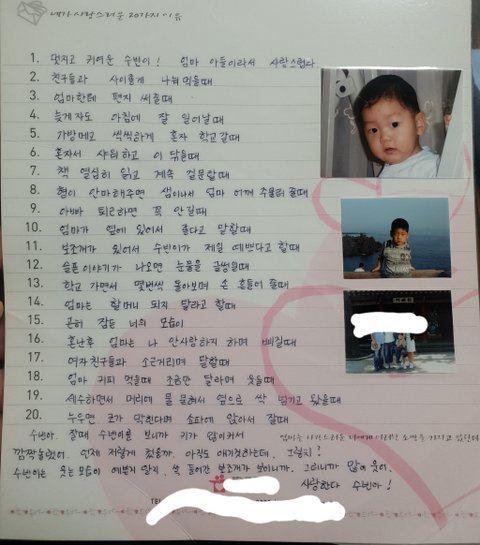 내가 사랑스러운 20가지 이유
1. 멋지고 귀여운 수빈이! 엄마 아들이라서 사랑스럽다
2. 친구들과 사이좋게 나눠먹을때
3. 엄마한테 편지 써줄때
4. 늦게 자도 아침에 잘 일어날때
5. 가방메고 씩씩하게 혼자 학교갈때
6. 혼자서 샤워하고 이 닦을때
7. 책 열심히 읽고 계속 질문할때
8. 형이 안마해주면 샘이나서 엄마 어깨 주물러 줄때
9. 아빠 퇴근하면 꼭 안길때
10. 엄마가 집에 있어서 좋다고 말할때
11. 보조개가 있어서 수빈이가 제일 예쁘다고 할때
12. 슬픈 이야기가 나오면 눈물을 글썽일때
13. 학교 가면서 몇번씩 돌아보며 손 흔들어 줄때
14. 엄마는 할머니 되지 말라고 할때
15. 곤히 잠든 너의 모습이
16. 혼난후 엄마는 나 안사랑하지 하며 삐질때
17. 여자친구들과 소근거리며 말할때
18. 엄마 커피 먹을때 조금만 달라며 웃을때
19. 세수하면서 머리에 물 묻혀서 옆으로 싹 넘기고 왔을때
20. 누우면 코가 막힌다며 소파에 앉아서 잘때
수빈아. 잘때 수빈이를 보니까 키가 많이커서
깜짝놀랬어. 언제 저렇게 컸을까. 아직도 애기것하는데. 그렇지?
수빈이는 웃는모습이 예쁜거 알지. 쏙 들어간 보조개가 보이니까. 그러니까 많이 웃어.
사랑한다 수빈아!
TEL